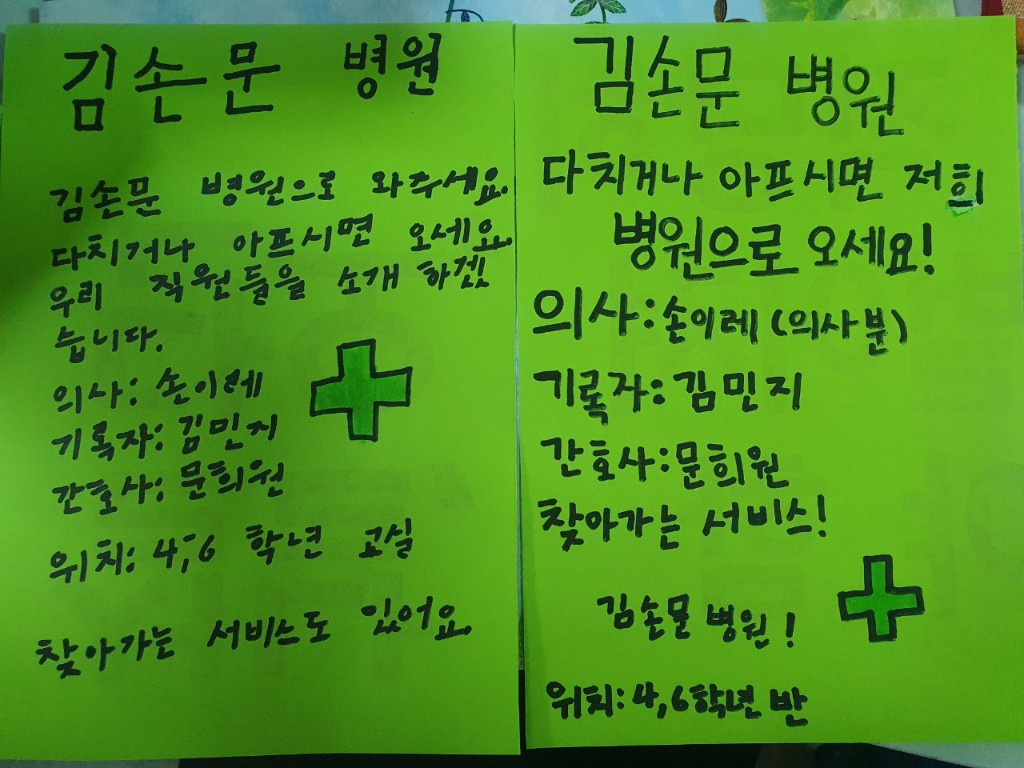 김손문 병원
김손문 병원으로 와주세요.
다치거나 아프시면 오세요.
우리 직원들을 소개 하겠
습니다.
의사: 손이레
기록자: 김민지
간호사: 문희원
위치: 4,6 학년 교실
찾아가는 서비스도 있어요.
김손문 병원
다치거나 아프시면 저희
병원으로 오세요!
의사: 손이레 (의사분)
기록자: 김민지
간호사: 문희원
찾아가는 서비스!
김손문 병원!
위치: 4,6학년 반